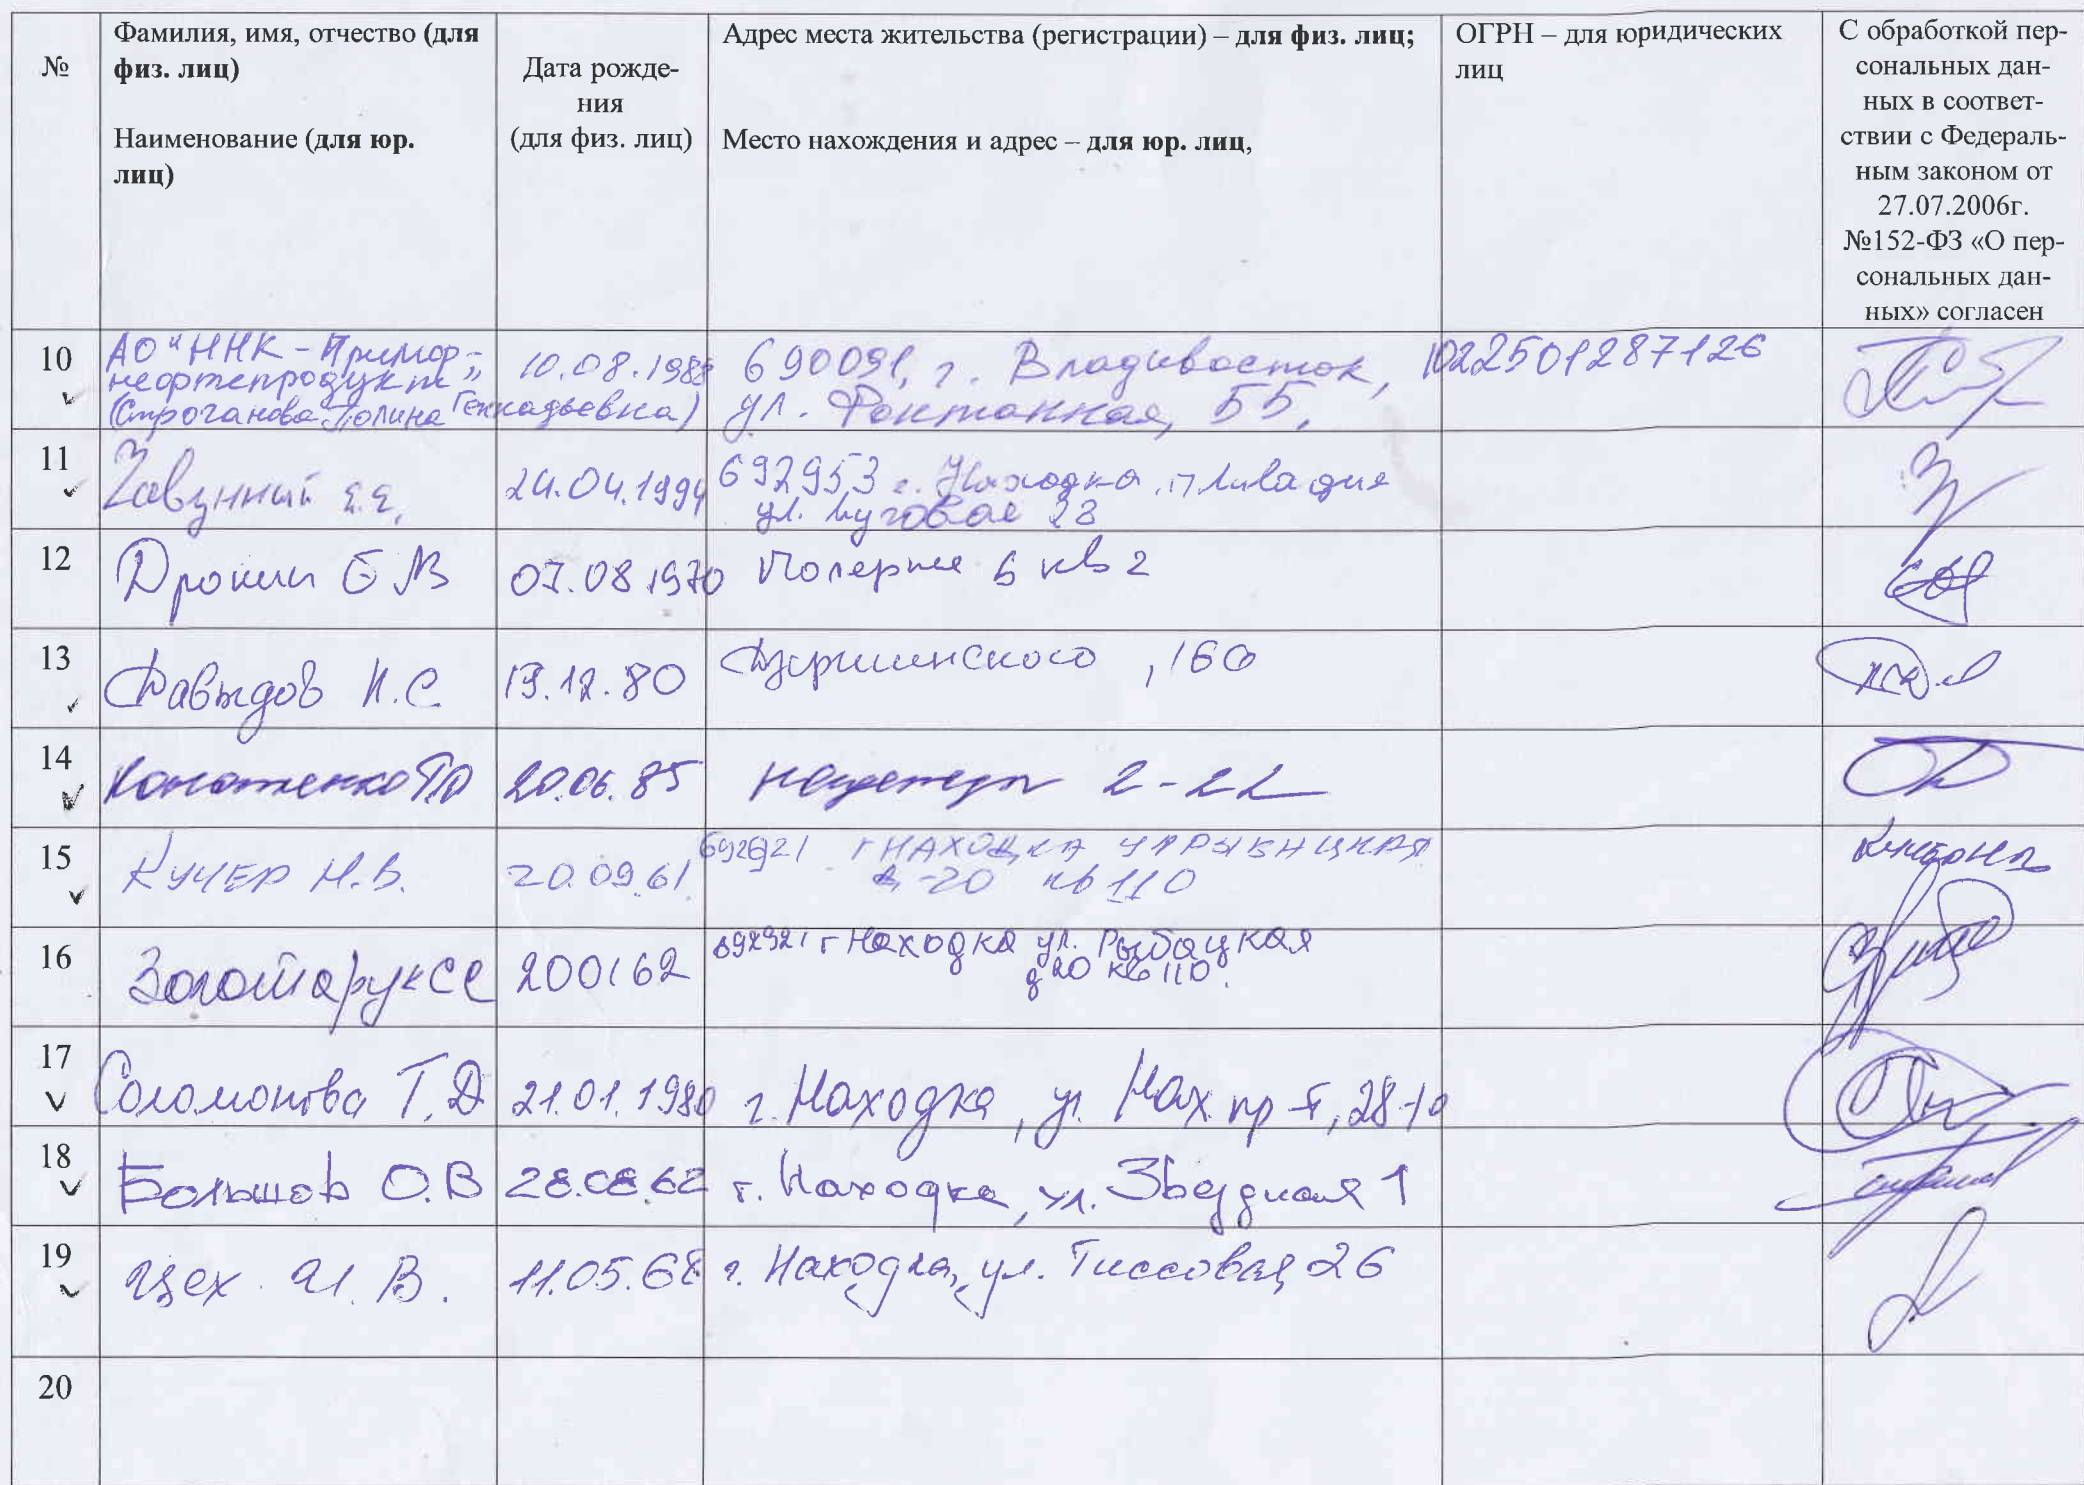 №
Фамилия, имя, отчество (для
физ. лиц)
Наименование (для юр.
лиц)
Дата рожде-
ния
(для физ. лиц)
Адрес места жительства (регистрации) – для физ. лиц;
Место нахождения и адрес – для юр. лиц,
ОГРН – для юридических
лиц
С обработкой пер-
сональных дан-
ных в соответ-
ствии с Федераль-
ным законом от
27.07.2006г.
№152-ФЗ «О пер-
сональных дан-
ных» согласен
10
АО "ННК - Примор-
нефтепродукт"
(Строганова Полина Геннадьевна)
10.08.1985
690091, г. Владивосток,
ул. Фонтанная, 55,
1022501287126
11
Е.Е.
24.04.1994
692953 г. Находка, п Ливадия
ул. Луговая 28
12
Дронин Е В
07.08.1970
6 кв 2
13
Давыдов И.С
19.12.80
Дзержинского, 16а
14
20.06.85
2-22
15
Кучер Н.В.
20.09.61
692921 г НАХОДКА УЛ РЫБАЦКАЯ
д-20 кв 110
16
Золотарук С Е
200162
692921 г Находка ул. Рыбацкая
д 20 кв 110.
17
Соломонова Т.Д
21.01.1980
г. Находка, ул. Нах. пр-т, 28-10
18
Большов О.В
28.08.62
г. Находка, ул. Звездная 1
19
Цех И. В.
11.05.68
г. Находка, ул. Тиссовая, 26
20